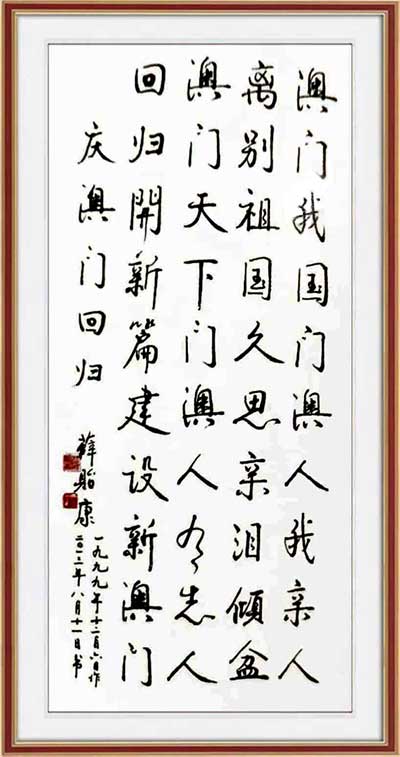 澳门我国门澳人我亲人
离别祖国久思亲泪倾盆
澳门天下门澳人有志人
回归開新篇建设新澳门
庆澳门回归
薛貽康
一九九九年十二月六日作
二〇一二年八月十一日书